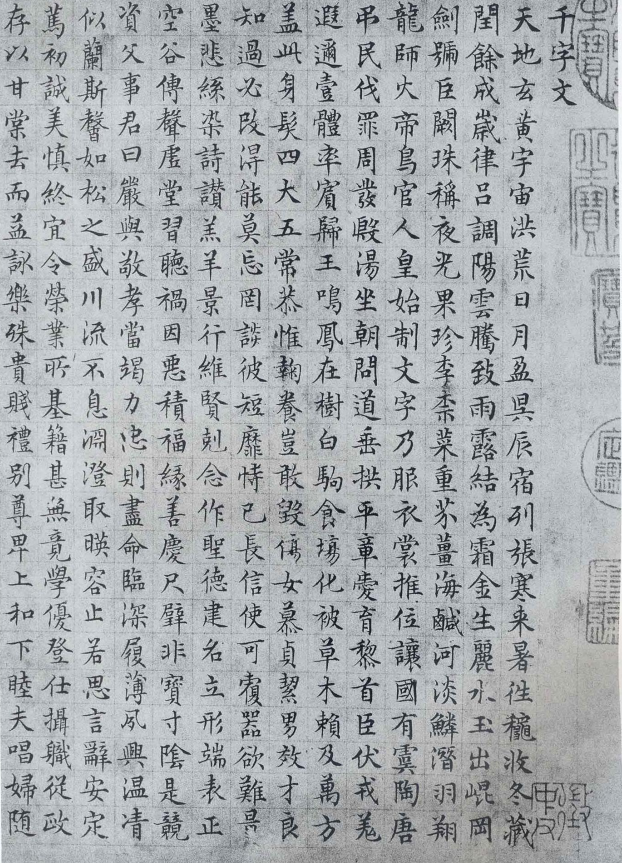 千字文
天地玄黄宇宙洪荒日月盈昃辰宿列張寒来暑往穐收冬藏
閏餘成歲律吕調陽雲騰致雨露結為霜金生麗水玉出崐岡
劍號巨闕珠稱夜光果珎李柰菜重芥薑海鹹河淡鱗潛羽翔
龍師火帝鳥官人皇始制文字乃服衣裳推位讓國有虞陶唐
弔民伐罪周發殷湯坐朝問道垂拱平章愛育黎首臣伏戎羌
遐邇壹體率賓歸王鳴鳳在樹白駒食場化被草木賴及萬方
盖此身髮四大五常恭惟鞠養豈敢毀傷女慕貞潔男效才良
知過必改得能莫忘罔談彼短靡恃己長信使可覆器欲難量
墨悲絲染詩讃羔羊景行維賢剋念作聖德建名立形端表正
空谷傳聲虛堂習聽禍因惡積福緣善慶尺璧非寶寸陰是競
資父事君曰嚴與敬孝當竭力忠則盡命臨深履薄夙興温凊
似蘭斯馨如松之盛川流不息淵澄取暎容止若思言辭安定
篤初誠美慎終宜令榮業所基籍甚無竟學優登仕攝職從政
存以甘棠去而益詠樂殊貴賤禮别尊卑上和下睦夫唱婦随